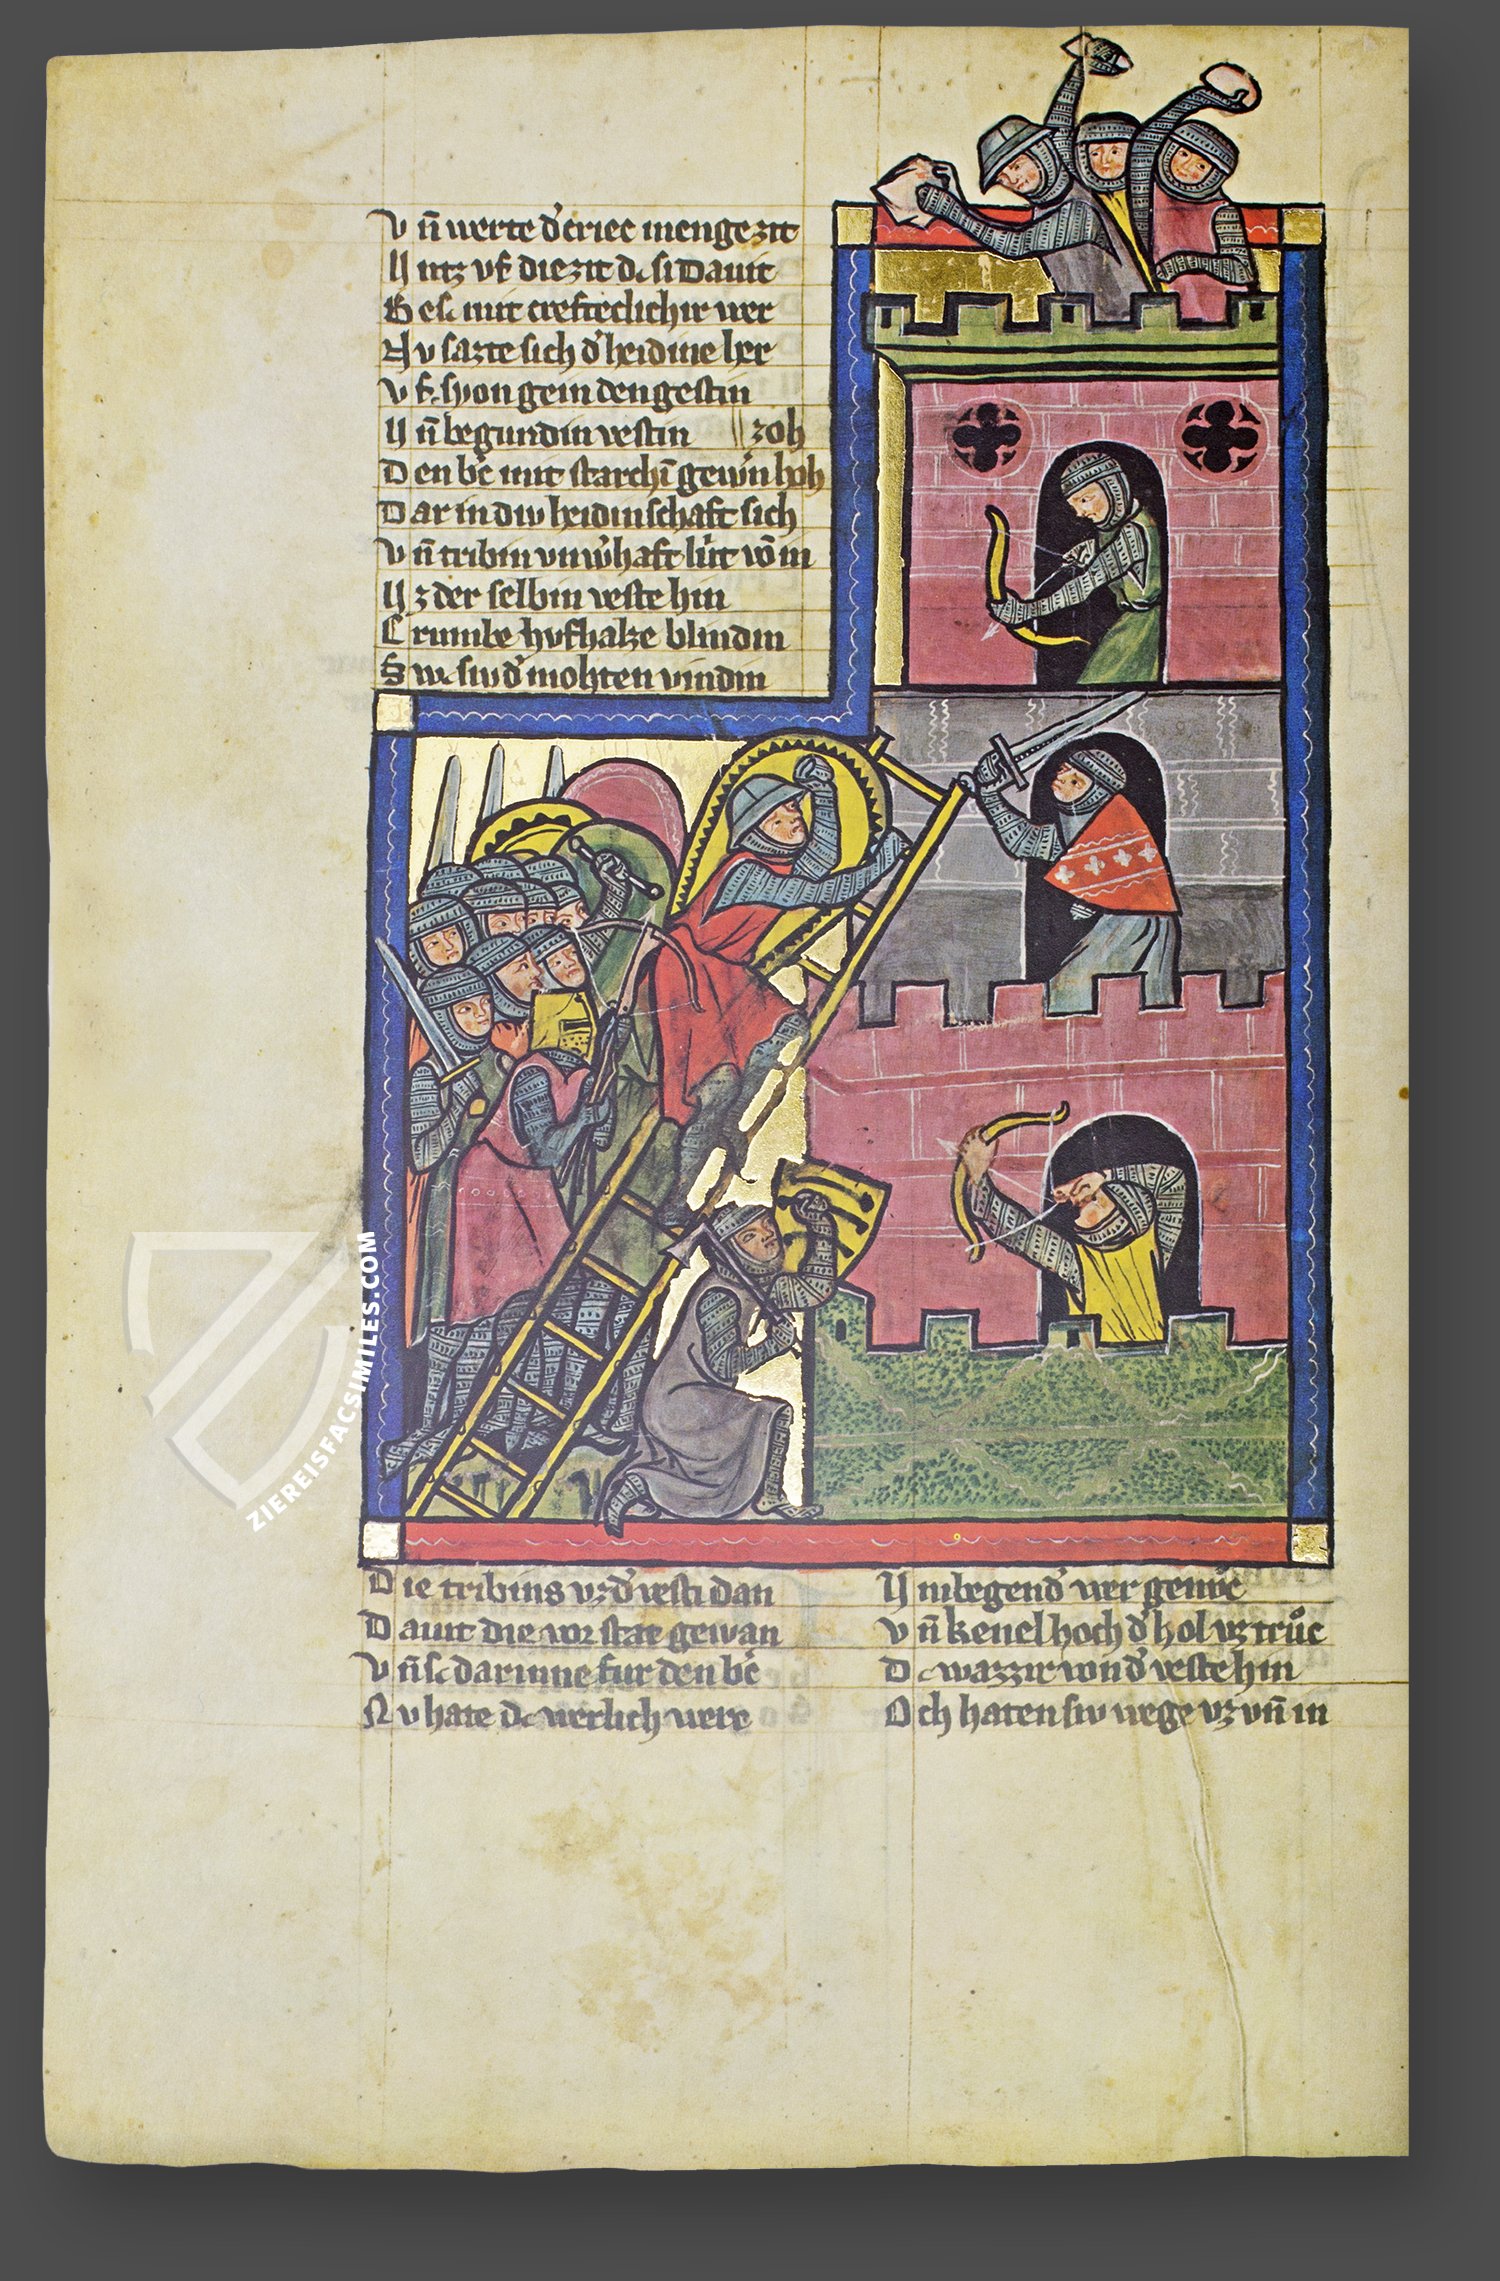 Vñ werte d̕ criec menge zit
Untz vf die zit dc si Dauit
Besc mit crefteclichir wer
Nv sazte sich d̕ heidine her
Vf syon gein den gestin
Uñ begundin vestin zoh
Den b̕c mit starchī gew̕n hoh
Dar in div heidinschaft sich
Vñ tribin vnw̕haft lv̍t vō in
Uz der selbin veste hin
Crumbe hufhalze blindin
Swc siv d̕ mohten vindin
Die tribins vz d̕ vesti dan
Dauit die vor stat gewan
Vñ sc dar inne fur den b̕c
Nv hate dc werlich werc
Umbegend̕ wer genv̊c
Vñ kenel hoch d̕ hol vz trůc
Dc wazzir von d̕ veste hin
Och haten siv wege vz vñ in
ZIEREISFACSIMILES.COM